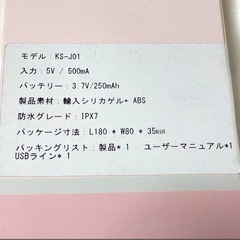 モデル：KS-J01
入力：5V / 500mA
バッテリー：3.7V/250mAh
製品素材：輸入シリカゲル+ ABS
防水グレード：IPX7
パッケージ寸法：L180 * W80 * 35mm
パッキングリスト：製品*1　ユーザーマニュアル*1
USBライン* 1